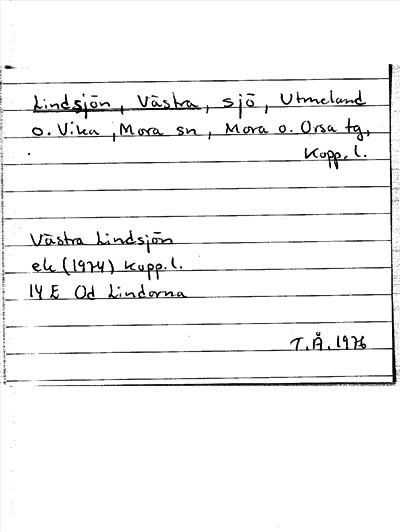 Lindsjön, Västra, sjö, Utmeland
o. Vika, Mora sn, Mora o. Orsa tg,
Kopp. l.
Västra Lindsjön
ek (1974) Kopp. l.
14 E Od Lindorna
T.Å. 1976